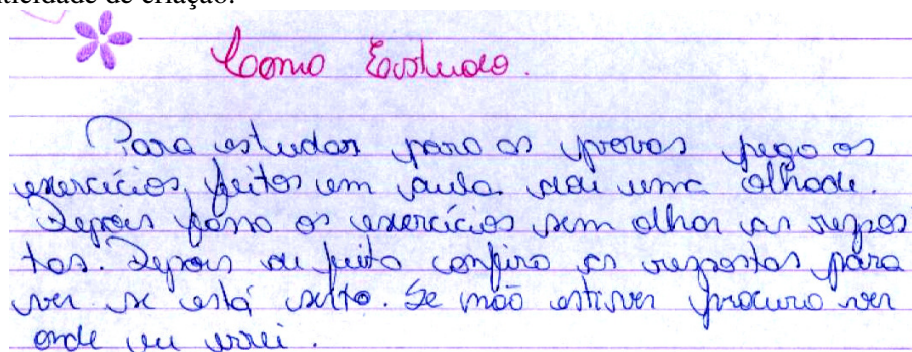 Como Estudo.
Para estudar para as provas pego os
exercícios, feitos em aula dou uma olhada.
Depois faço os exercícios sem olhar as respos
tas. Depois de feito confiro as respostas para
ver se está certo. Se não estiver procuro ver
onde eu errei.